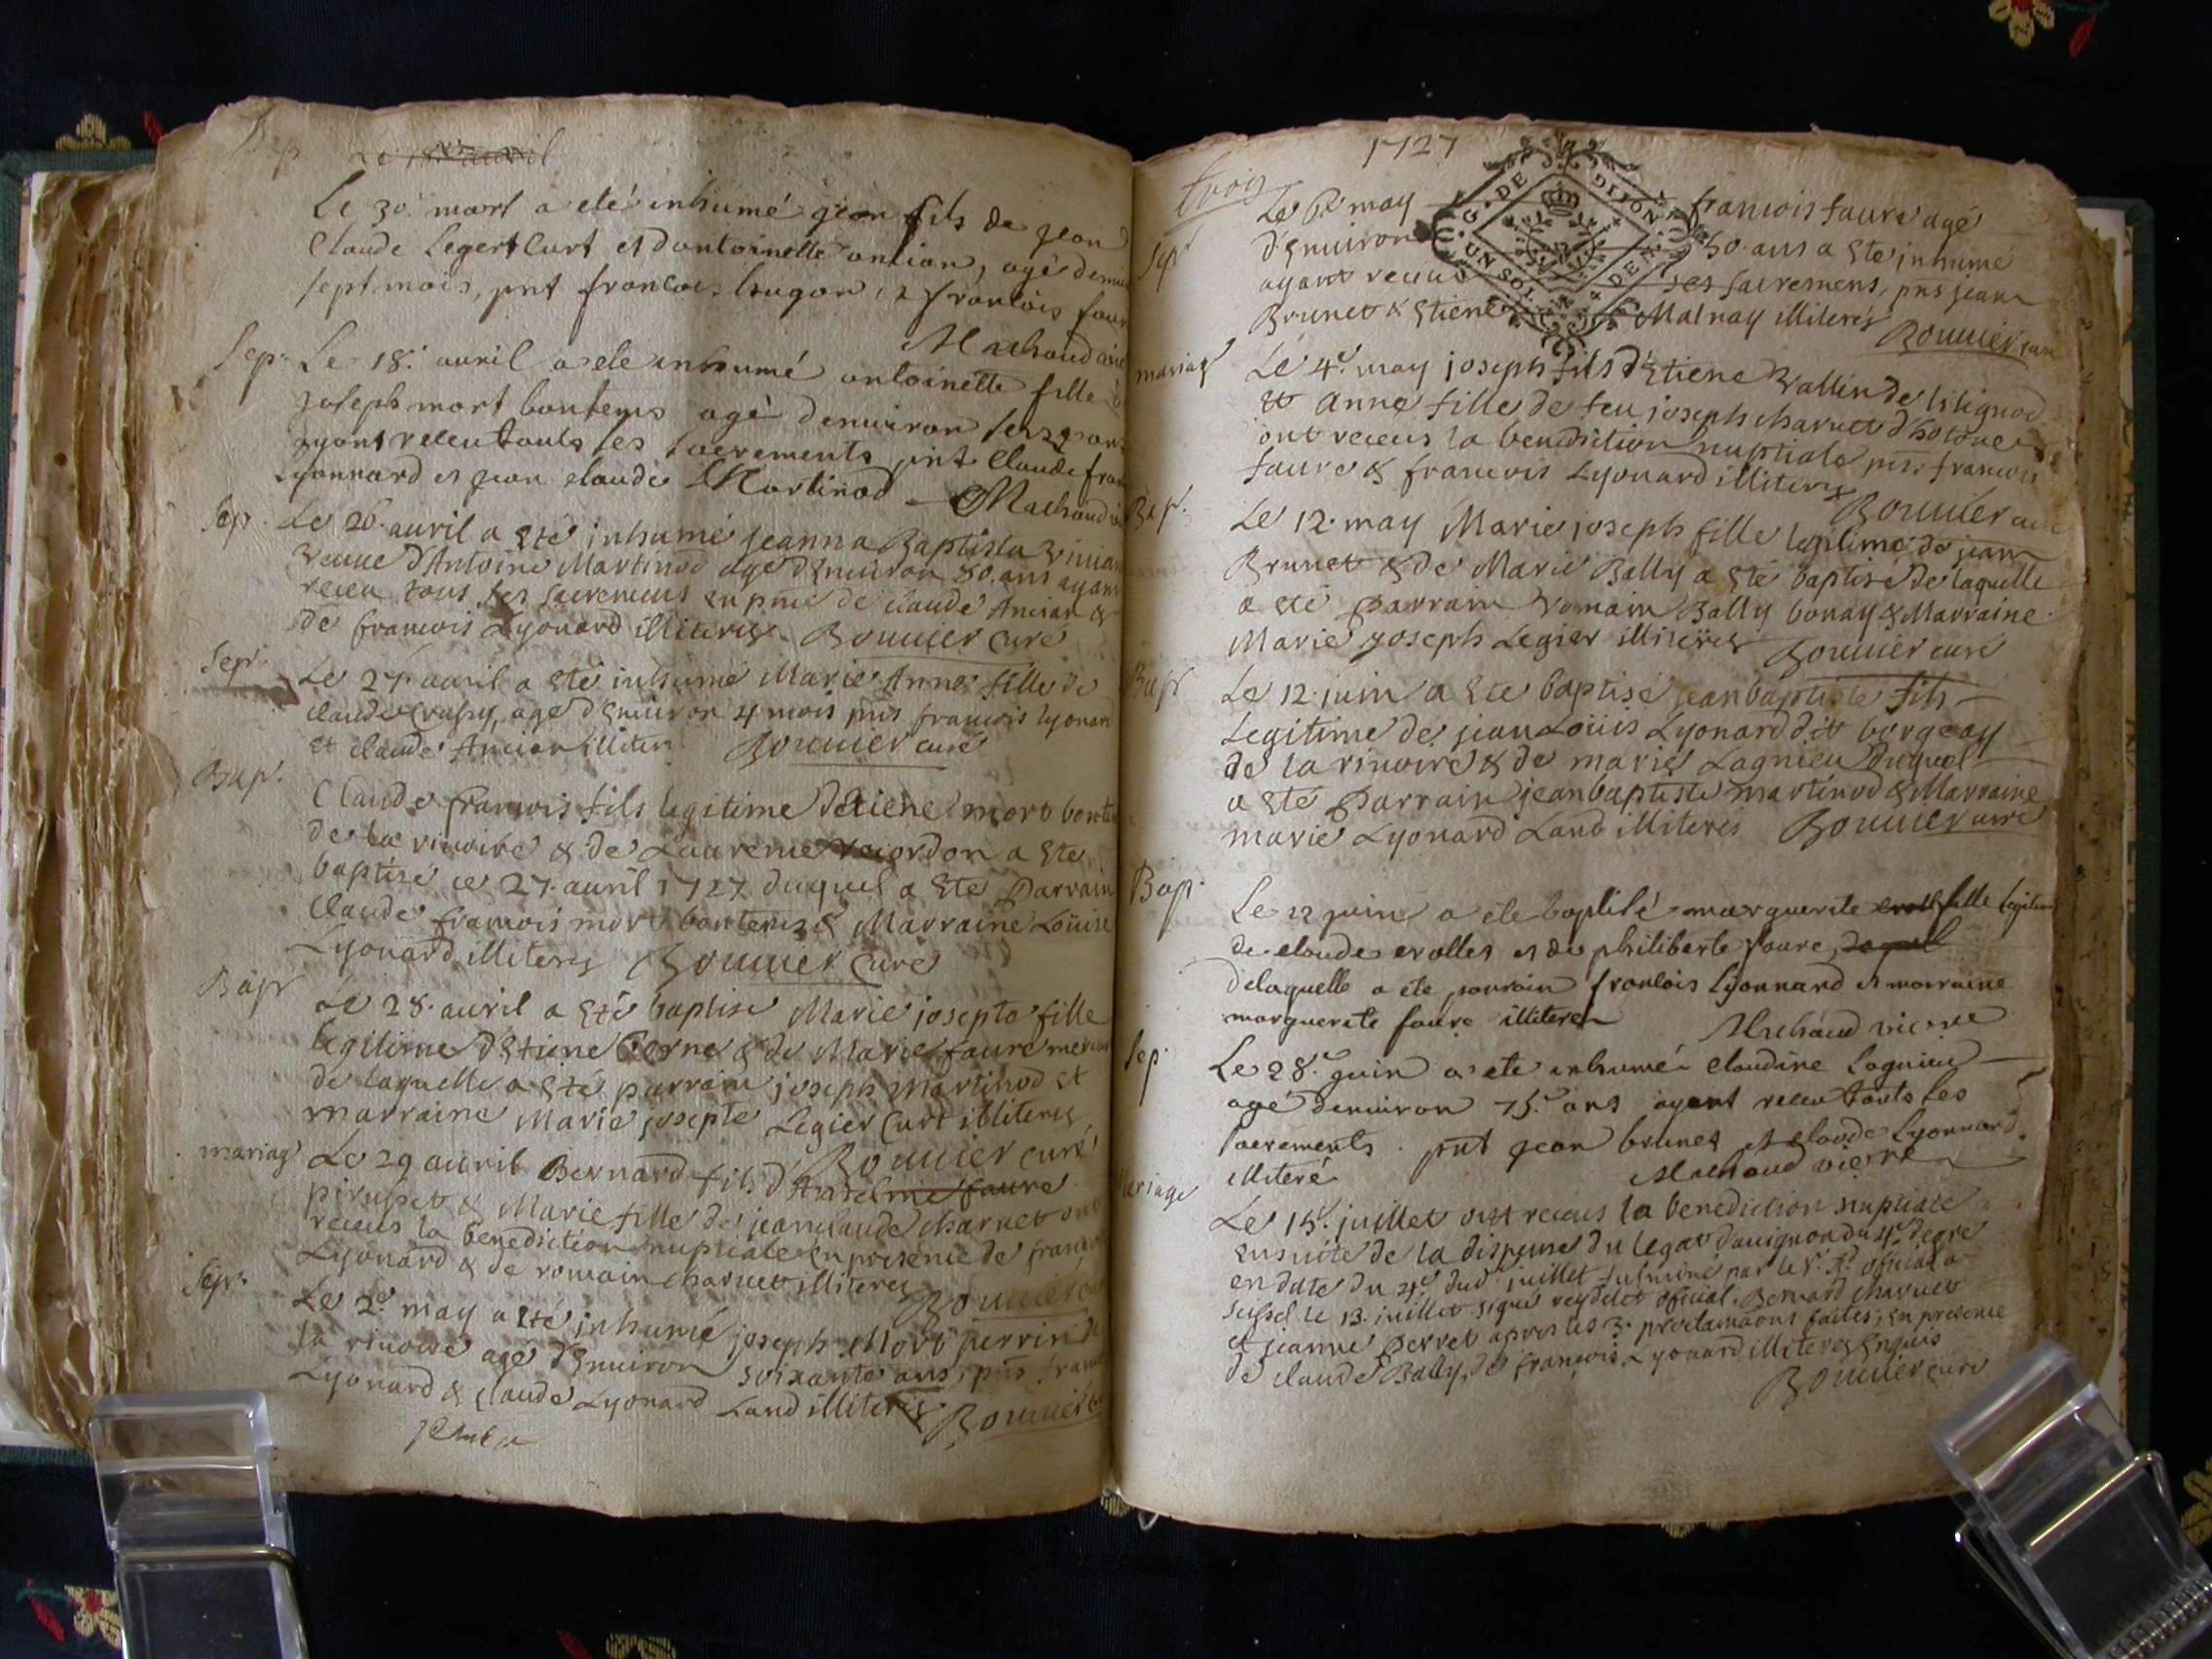 Bap Le 18 auril
Le 30. mart a eté inhumé jean fils de jean
Claude Legert Curt et dantoinette ancian, agé denui
sept mois, pnt francois hugon, & francois faur
Machaud
Sep. Le 18. auril a eté inhumé antoinette fille d
joseph mort bontems agé denuiron seize ans
ayant receu touts les sacrements pnt Claude fran
Lyonnard et jean claude Martinod Machaud
Sep. Le 26. auril a Eté inhumé jeanna Baptista
veuue d'Antoine Martinod agé d'Enuiron 80. ans ayant
receu tous ses sacremens en pnce de claude Ancian &
de francois Lyonard illiteres Bouuier Curé
Sep. Le 27 auril a Eté inhumé Marie Anne fille de
claude Crussy, agé d'Enuiron 4 mois pns francois lyonard
et claude Ancian illiter. Bouuier curé
Bap. Claude francois fils legitime d'etiene mort bontem
de la riuoire & de Laurence recordon a Ete
baptisé ce 27. auril 1727 duquel a Eté Parrain
Claude francois mort bontems & Marraine Loüise
Lyonard illiteres Bouuier Curé
Bap Le 28. auril a Eté baptise Marie josepte fille
legitime d'Etiene Berne & de Marie faure
de laquelle a Eté parrain joseph Martinod et
marraine Marie josepte Legier Curt illiteres
Bouuier curé
mariag Le 29 auril Bernard fils d'Anselme faure
pirusset & Marie fille de jeanclaude charuet ont
receus la benediction nuptiale en presence de franco
Lyonard & de romain charuet illiteres
Bouuier
Sep. Le 2e may a Eté inhumé joseph Mort perrin de
la riuoire agé d'Enuiron soixante ans, pns franc
Lyonard & claude Lyonard Land illiteres Bouuier
1727
trois
G. DE DIJON
UN SOL DEN.
Sep Le 6e may francois faure agé
d'Enuiron 50. ans a Eté inhumé
ayant receus ses sacremens, pns jean
Brunet & Etiene Malnay illiterés
Bouuier curé
mariag Le 4e may joseph fils d'Etiene Vallin de lilignod
et Anne fille de feu joseph charuet d'hotone
ont receus la benediction nuptiale pns. francois
faure & francois Lyonard illiteres
Bouuier curé
Bap. Le 12. may Marie joseph fille legitime de jean
Brunet & de Marie Bally a Eté baptisé de laquelle
a eté parrain romain Bally bonay & Marraine
Marie joseph Legier illiteres Bouuier curé
Bap Le 12. juin a Eté baptisé jeanbaptiste fils
Legitime de jean Loüis Lyonard dit borgeay
de la riuoire & de marie Lagnieu Duquel
a Eté Parrain jeanbaptiste martinod & Marraine
marie Lyonard Land illiteres Bouuier curé
Bap. Le 12 juin a eté baptisé marguerite fille legitim
de claude crolles et de philiberte faure, duquel
delaquelle a eté parrain francois Lyonnard et marraine
marguerite faure illiteres Machaud vicaire
Sep. Le 28. juin a eté inhumé claudine Lagnieu
agé denuiron 75. ans ayant receu touts les
sacrements. pnt jean brunet et claude Lyonnard
illiteré Machaud vicaire
Mariage Le 15. juillet ont receus la benediction nuptiale
ensuite de la dispense du legat dauignon du 4e degré
en date du 4e dud. juillet fulminé par le Sr. official a
le 13. juillet signé reydelet official. Bernard charuet
et jeanne Perret apres les 3. proclamaons faites, en presence
de claude Bally, de francois Lyonard illiteres Enquis
Bouuier curé